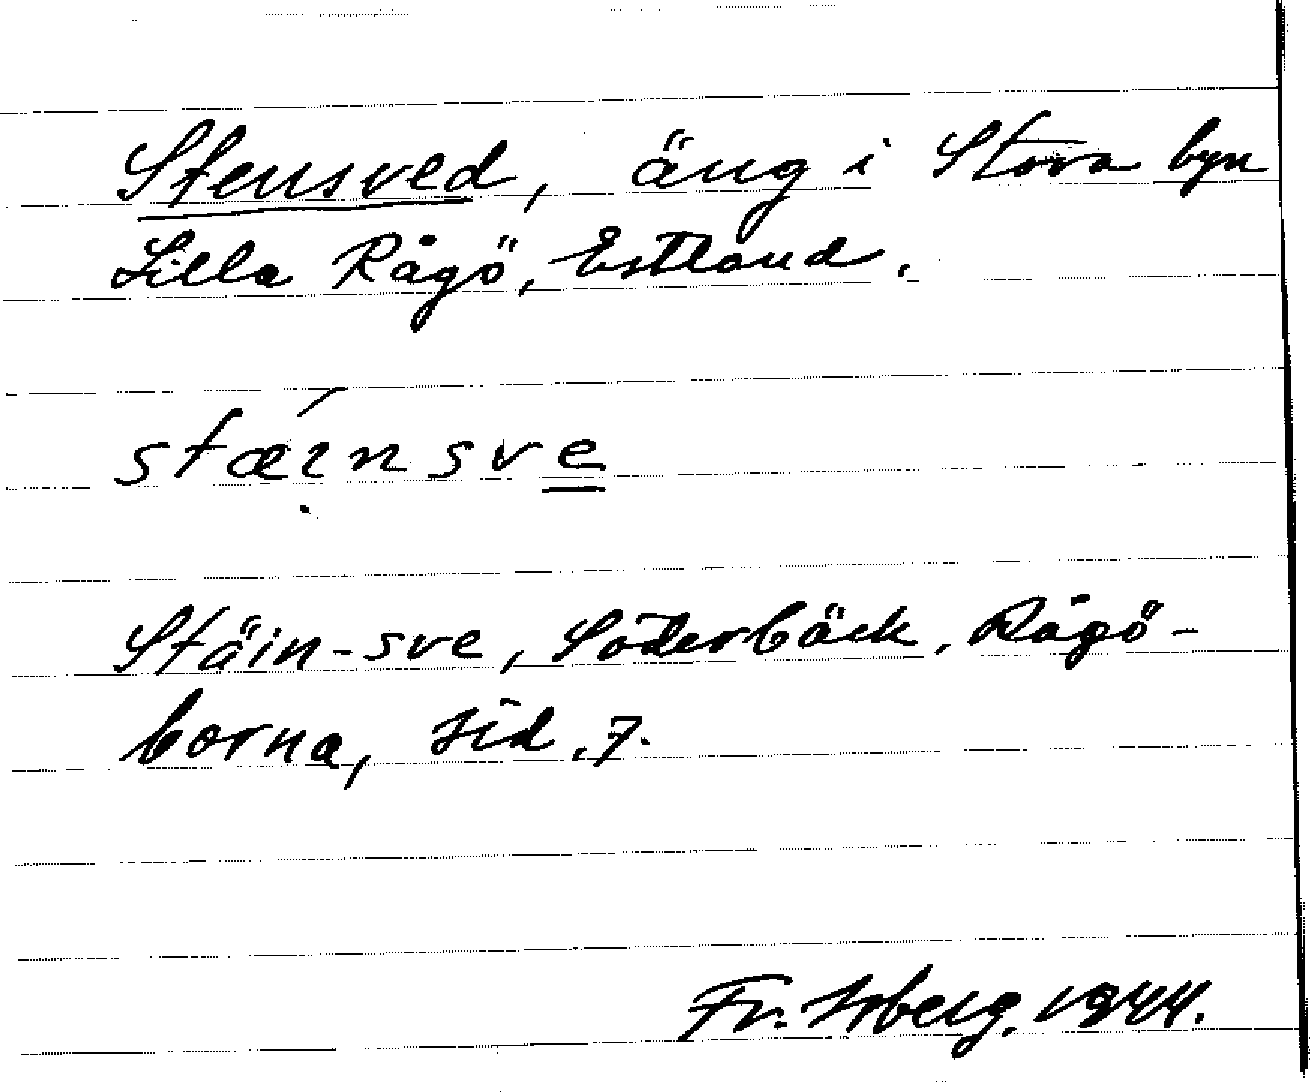 Stensved, äng i Stora byn
Lilla Rågö, Estland.
stǽ̣insve̲
Stäin-sve, Söderbäck, Rågö-
borna, sid. 7.
Fr. Isberg. 1944.